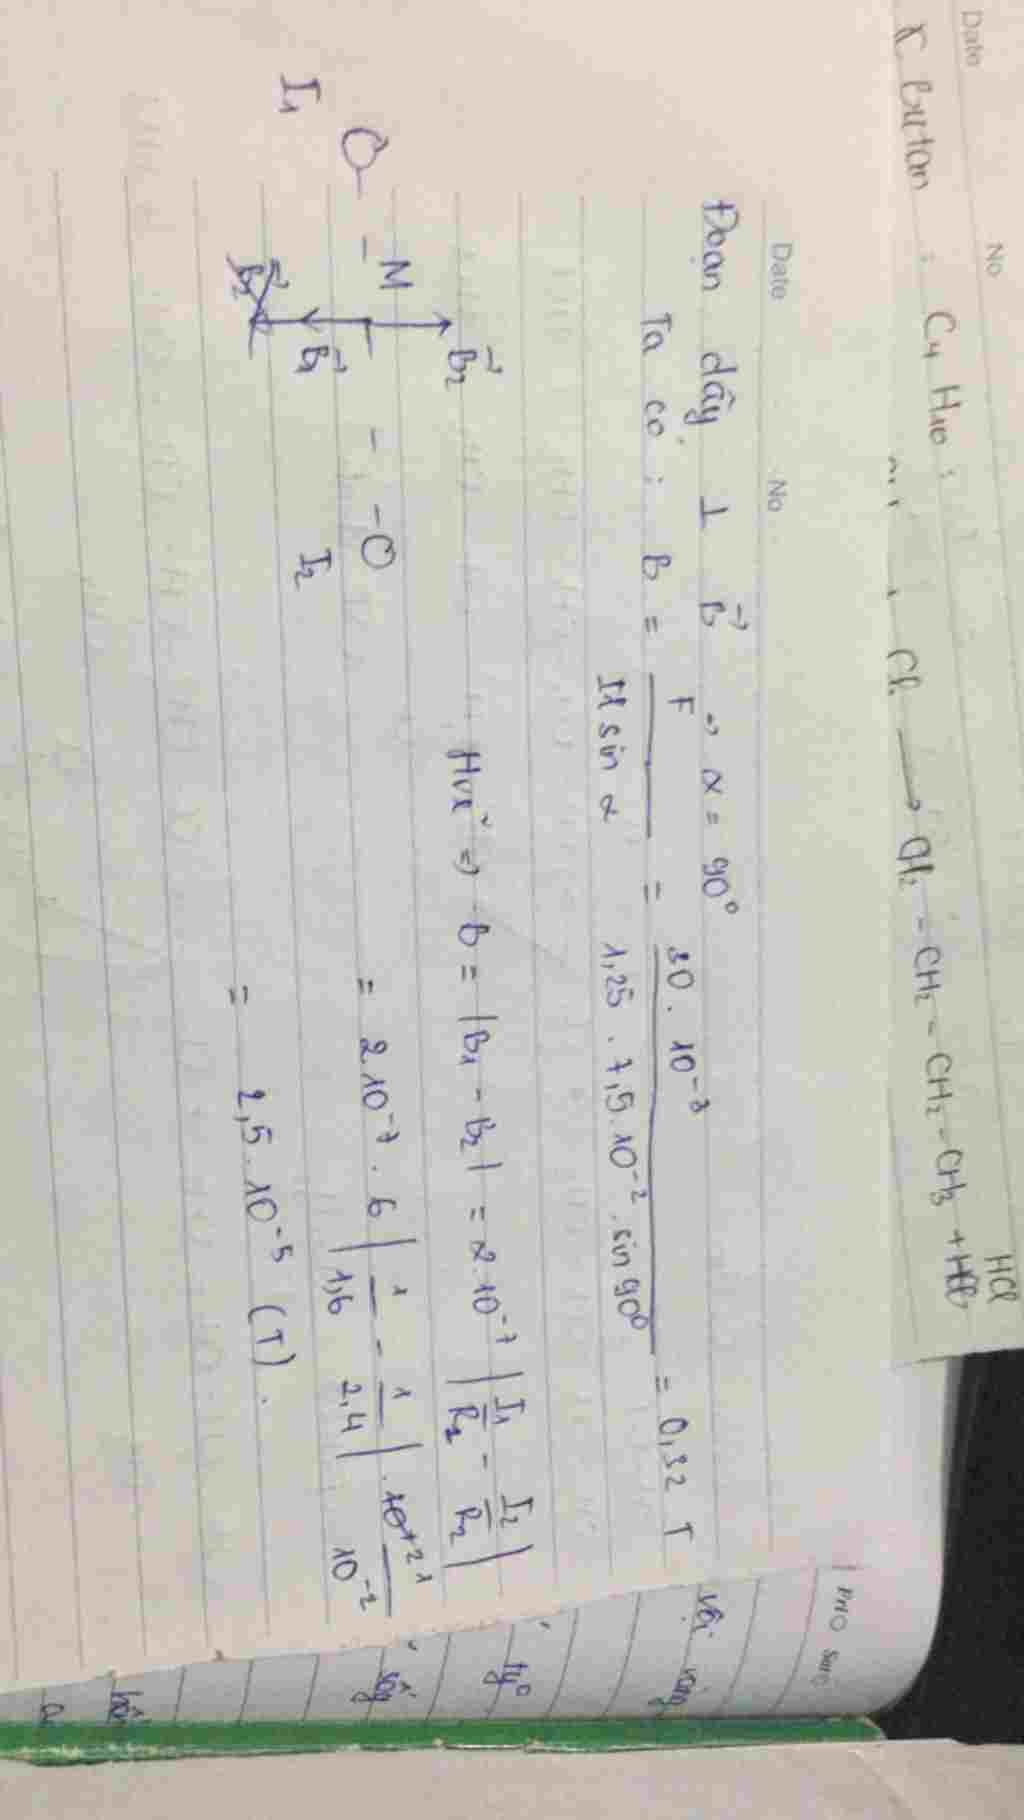 Date No
K Butan : C₄ H₁₀ :
HCl
Cl₂ ⟶ CH₂ - CH₂ - CH₂ - CH₃ + HCl
Date No
Đoạn dây ⊥ B⃗ → α = 90⁰
Ta có : B = F / Il sin α = 30 . 10⁻³ / 1,25 . 7,5 . 10⁻² . sin 90⁰ = 0,32 T
M B⃗₂
B⃗₁
B⃗₂
I₁ I₂
Hvẽ ⇒ B = |B₁ - B₂| = 2.10⁻⁷ | I₁/R₁ - I₂/R₂ |
= 2.10⁻⁷ . 6 | 1/1,6 - 1/2,4 | . 1/10⁻²
= 2,5 . 10⁻⁵ (T) .